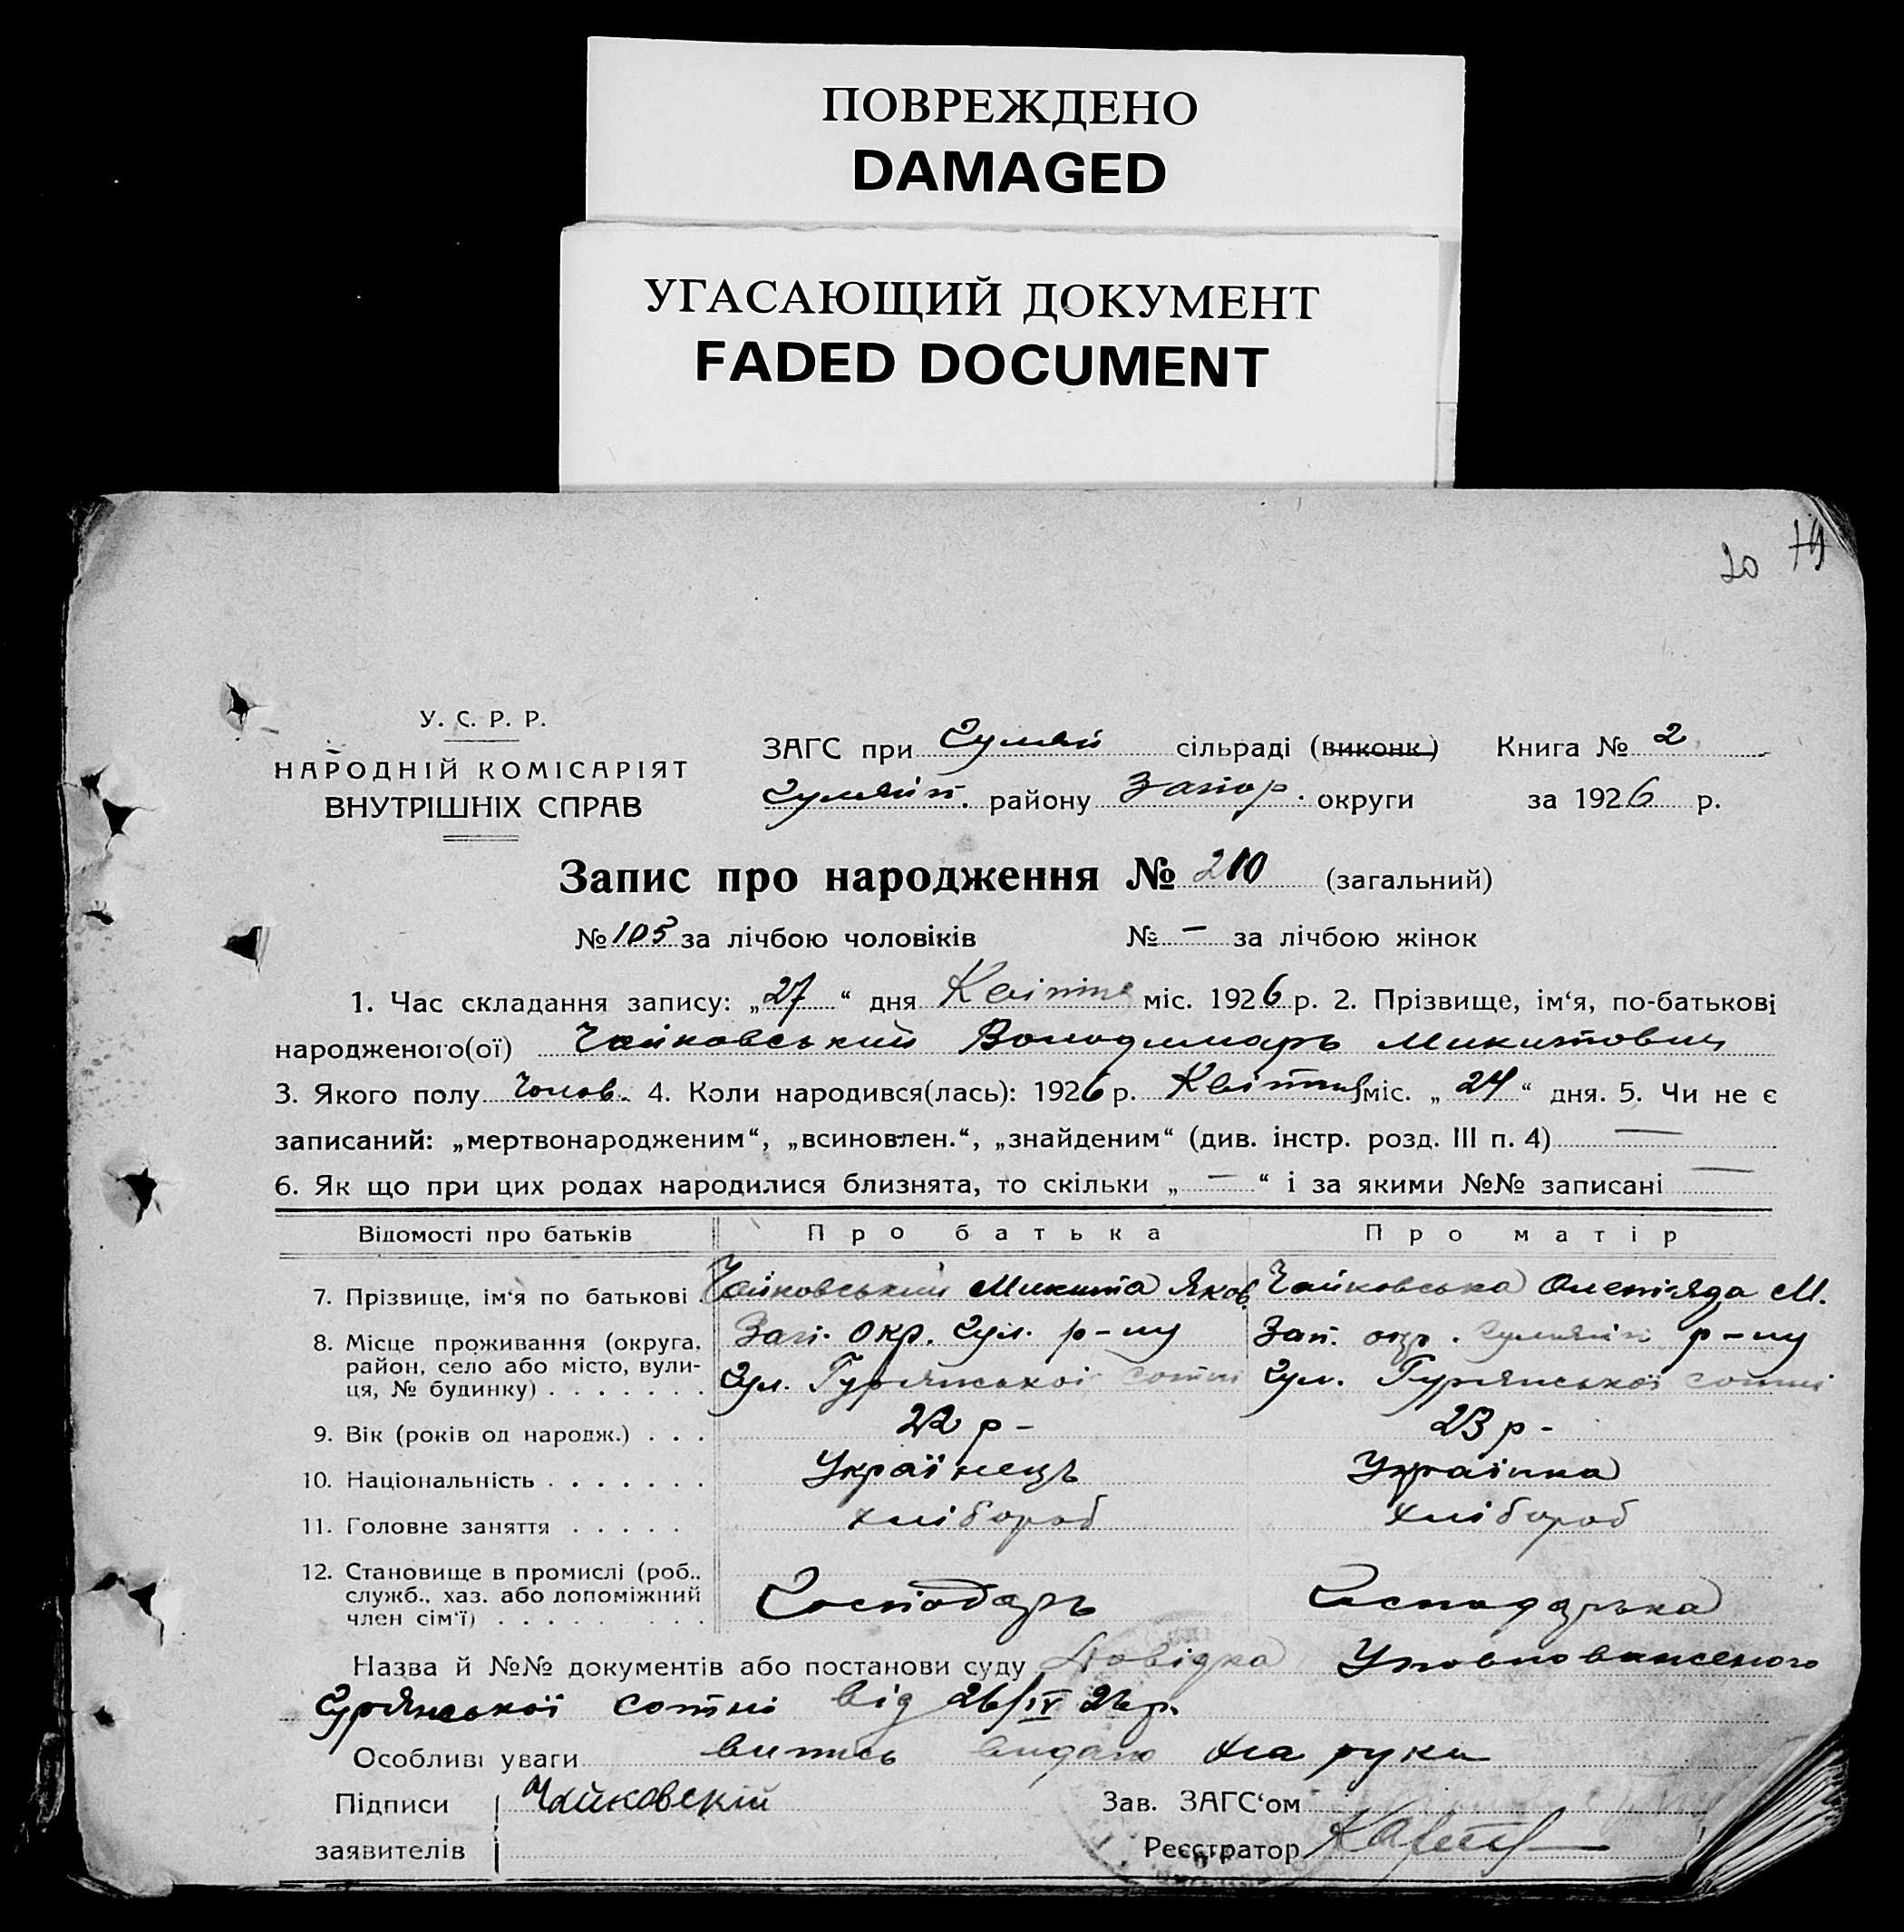 ПОВРЕЖДЕНО
DAMAGED
УГАСАЮЩИЙ ДОКУМЕНТ
FADED DOCUMENT
20 19
У. С. Р. Р.
НАРОДНІЙ КОМІСАРІЯТ
ВНУТРІШНІХ СПРАВ
ЗАГС при Гуляй сільраді (виконк.) Книга № 2
Гуляйп. району Запор. округи за 1926 р.
Запис про народження № 210 (загальний)
№ 105 за лічбою чоловіків № — за лічбою жінок
1. Час складання запису: „27“ дня Квітня міс. 1926 р. 2. Прізвище, ім‘я, по-батькові
народженого(ої) Чайковський Володимиръ Микитович
3. Якого полу Чолов. 4. Коли народився(лась): 1926 р. Квітня міс. „24“ дня. 5. Чи не є
записаний: „мертвонародженим“, „всиновлен.“, „знайденим“ (див. інстр. розд. III п. 4) —
6. Як що при цих родах народилися близнята, то скільки „—“ і за якими №№ записані —
Відомості про батьків Про батька Про матір
7. Прізвище, ім‘я по батькові Чайковський Микита Яков. Чайковська М.
8. Місце проживання (округа, Зап. окр. Гул. р-ну Зап. окр. Гуляйп р-ну
район, село або місто, вули-
ця, № будинку) . . . . . . . Гул. сотні Гул. сотні
9. Вік (років од народж.) . . . 22 р - 23 р -
10. Національність . . . . . . . Українець Українка
11. Головне заняття . . . . . хлібороб хлібороб
12. Становище в промислі (роб.,
служб., хаз. або допоміжний Господарь Господарька
член сім‘ї) . . . . . . . . .
Назва й №№ документів або постанови суду Довідка Уповноваженого
сотні від 26/IV 26 р.
Особливі уваги випись видано на руки
Підписи Чайковскій Зав. ЗАГС‘ом
заявителів Реєстратор